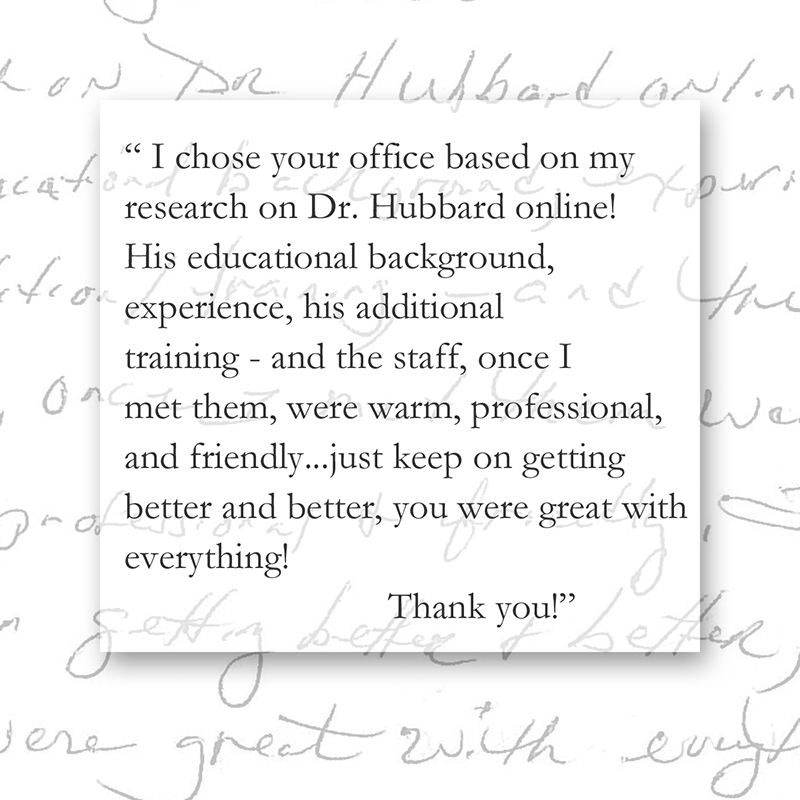 on Dr Hubbard onlin
“ I chose your office based on my
research on Dr. Hubbard online!
His educational background,
experience, his additional
training - and the staff, once I
met them, were warm, professional,
and friendly...just keep on getting
better and better, you were great with
everything!
Thank you!”
getting better + better,
were great with everyt